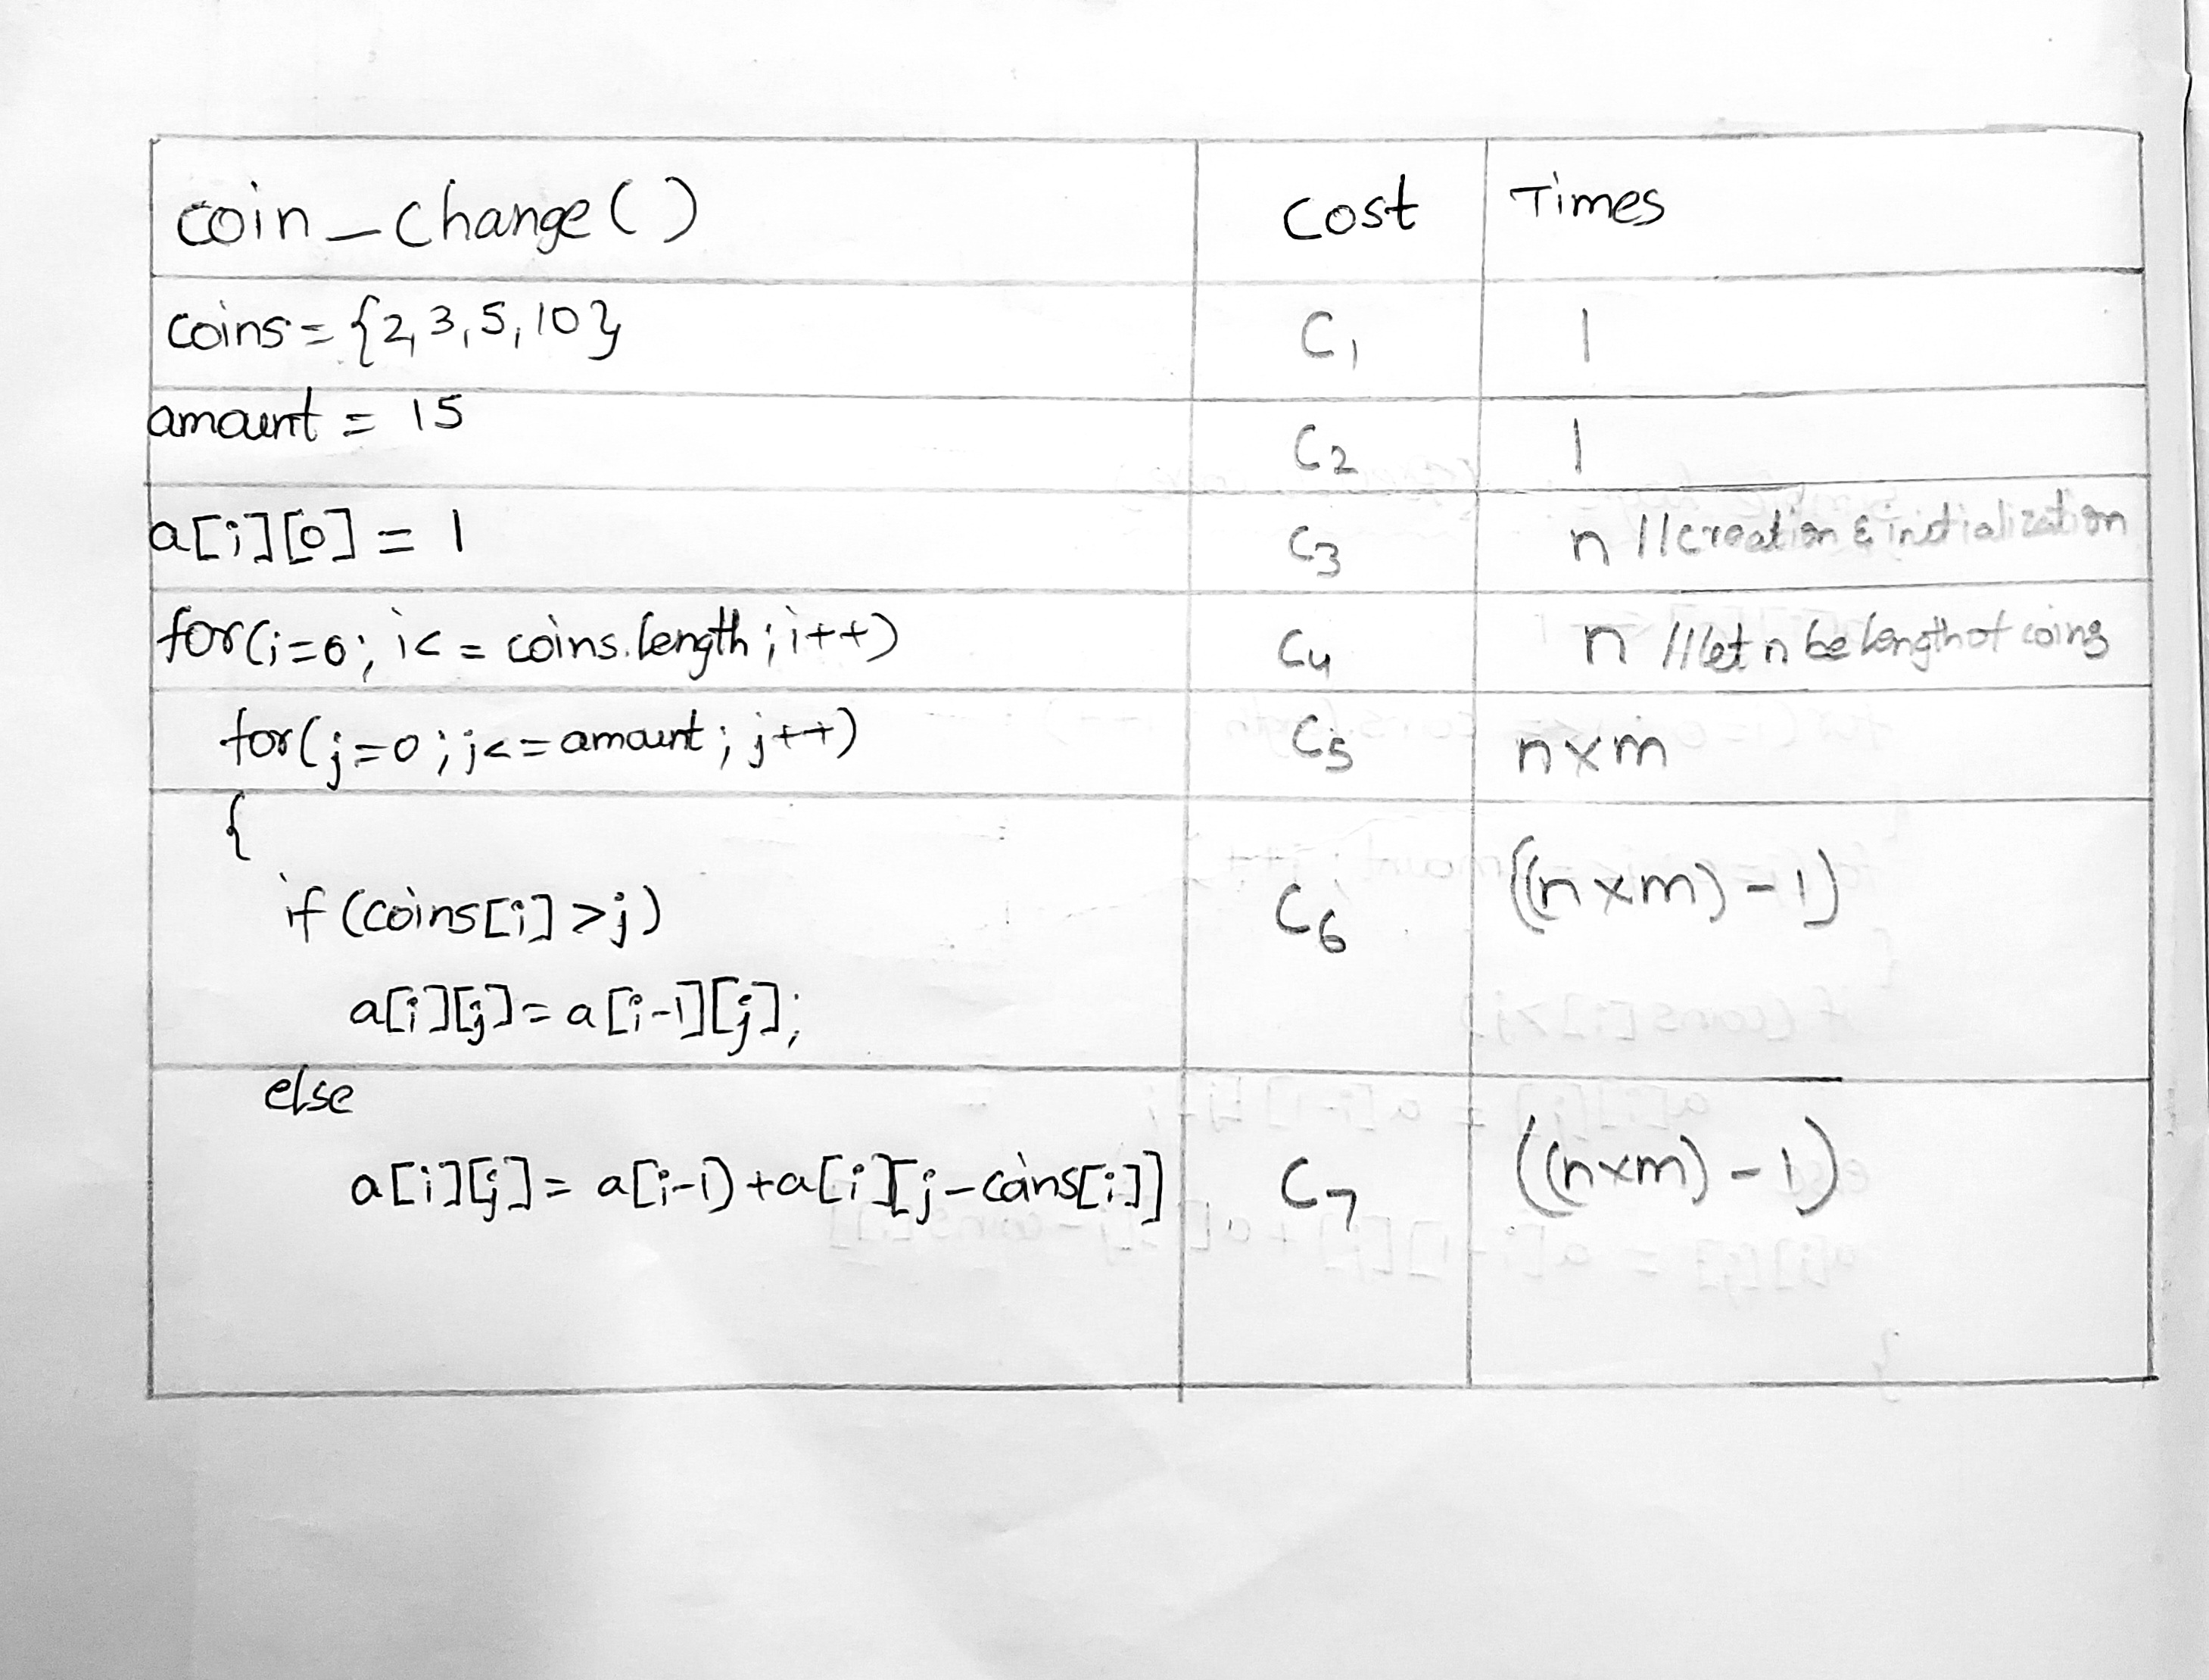 coin_change() Cost Times
coins = {2,3,5,10} C1 1
amount = 15 C2 1
a[i][0] = 1 C3 n //creation & initialization
for(i=0; i<= coins.length; i++) C4 n //let n be length of coins
for(j=0; j<=amount; j++) C5 n×m
{
if (coins[i] > j) C6 ((n×m)-1)
a[i][j] = a[i-1][j];
else
a[i][j] = a[i-1) + a[i][j-coins[i]] C7 ((n×m)-1)